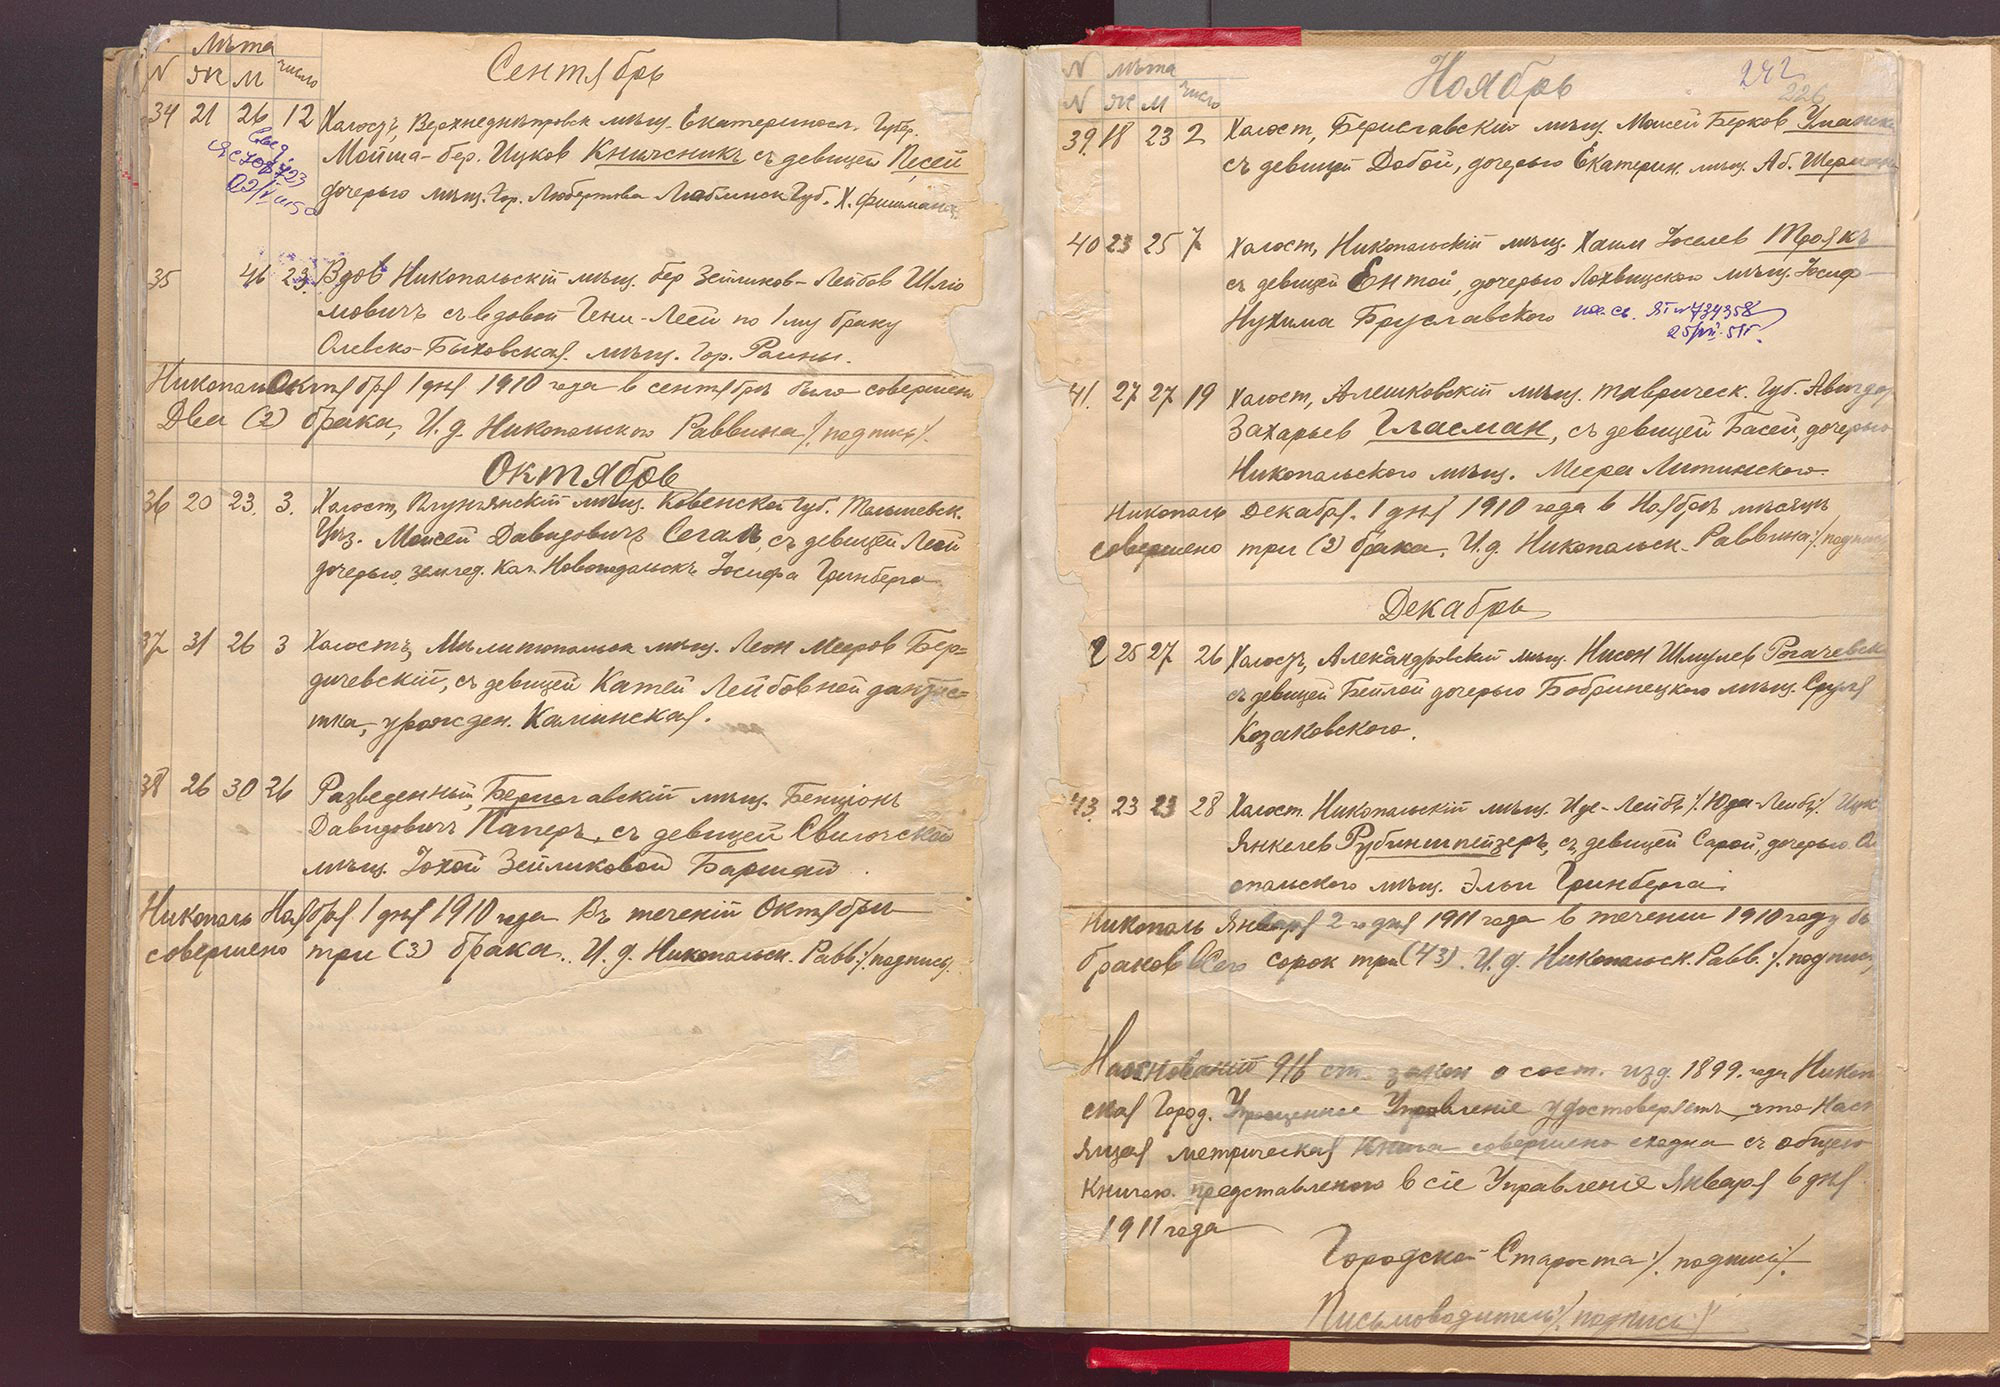 N лѣта число
N Ж М
Сентябрь
34 21 26 12 Холостъ, Верхнеднѣпровск мѣщ. Екатериносл. Губер.
Мойша-бер. Ицков Книжникъ съ девицей Песей
дочерью мѣщ. гор. Люблинск Губ. Х. Фишмана.
35 46 23. Вдов Никопольскій мѣщ. бер Зейликов-Лейбов Шліо
мовичъ съ вдовой Гени-Леей по 1му браку
Олевско-Быховская мѣщ. гор.
Никополь Октября 1 дня 1910 года в сентябрѣ было совершено
Два (2) брака, И. д. Никопольского Раввина /. подпись/.
Октябрь
36 20 23. 3. Холост, мѣщ. Ковенской Губ. Тельшевск.
Уѣз. Моисей Давидовичъ Сегалъ, съ девицей Леей
дочерью землед. кол. Иосифа Гринберга
37 31 26 3 Холостъ, Мелитопольск мѣщ. Леон Мееров Бер=
дичевскій, съ девицей Катей Лейбовной дантис=
тка, урожден. Калинская.
38 26 30 26 Разведенный, Бериславскій мѣщ. Бенціонъ
Давидовичъ Паперъ, съ девицей
мѣщ. Зейликовой
Никополь Ноября 1 дня 1910 года Въ теченій Октября
совершено три (3) брака. И. д. Никопольск. Равв. /. подпись/.
242
226
N лѣта число
N Ж М
Ноябрь
39. 18 23 2 Холост, Бериславскій мѣщ. Моисей Берков
съ девицей Добой, дочерью Екатерин. мѣщ. Аб.
40 23 25 7 Холост, Никопольскій мѣщ. Хаим Иоселев Троякъ
съ девицей Ентой, дочерью Лохвицского мѣщ. Иосиф-
Нухима Бруславского
41. 27 27 19 Холост, Алешковскій мѣщ. Таврическ. Губ. Авигдор
Захарьев Гласман, съ девицей Басей, дочерью
Никопольского мѣщ. Меера Литинского.
Никополь Декабря 1 дня 1910 года в Ноябрѣ мѣсяцѣ
совершено три (3) брака. И. д. Никопольск. Раввина /. подпись
Декабрь
2 25 27 26 Холостъ, Александровскій мѣщ. Нисон Шмулев Рогачевск
съ девицей Бейлой дочерью Бобринецкого мѣщ. Сруля
Козаковского.
43. 23 23 28 Холост. Никопольскій мѣщ. Иде-Лейбъ /. Юда-Лейбъ/. Ицк
Янкелев Рубинштейзеръ, съ девицей Сарой, дочерью
мѣщ. Эльи Гринберга.
Никополь Января 2 го дня 1911 года в течении 1910 году бы
браков всего сорок три (43). И. д. Никопольск. Равв. /. подпись
На основаній 916 ст. закон о сост. изд. 1899. года Никоп
ская Город. Упрощенное Управленіе удостоверяетъ, что наст
ящая метрическая книга совершено сходна съ общею
книгою представленою в сіе Управленіе Января 6 дня
1911 года
Городской Староста /. подпись/.
Письмоводитель /. подпись/